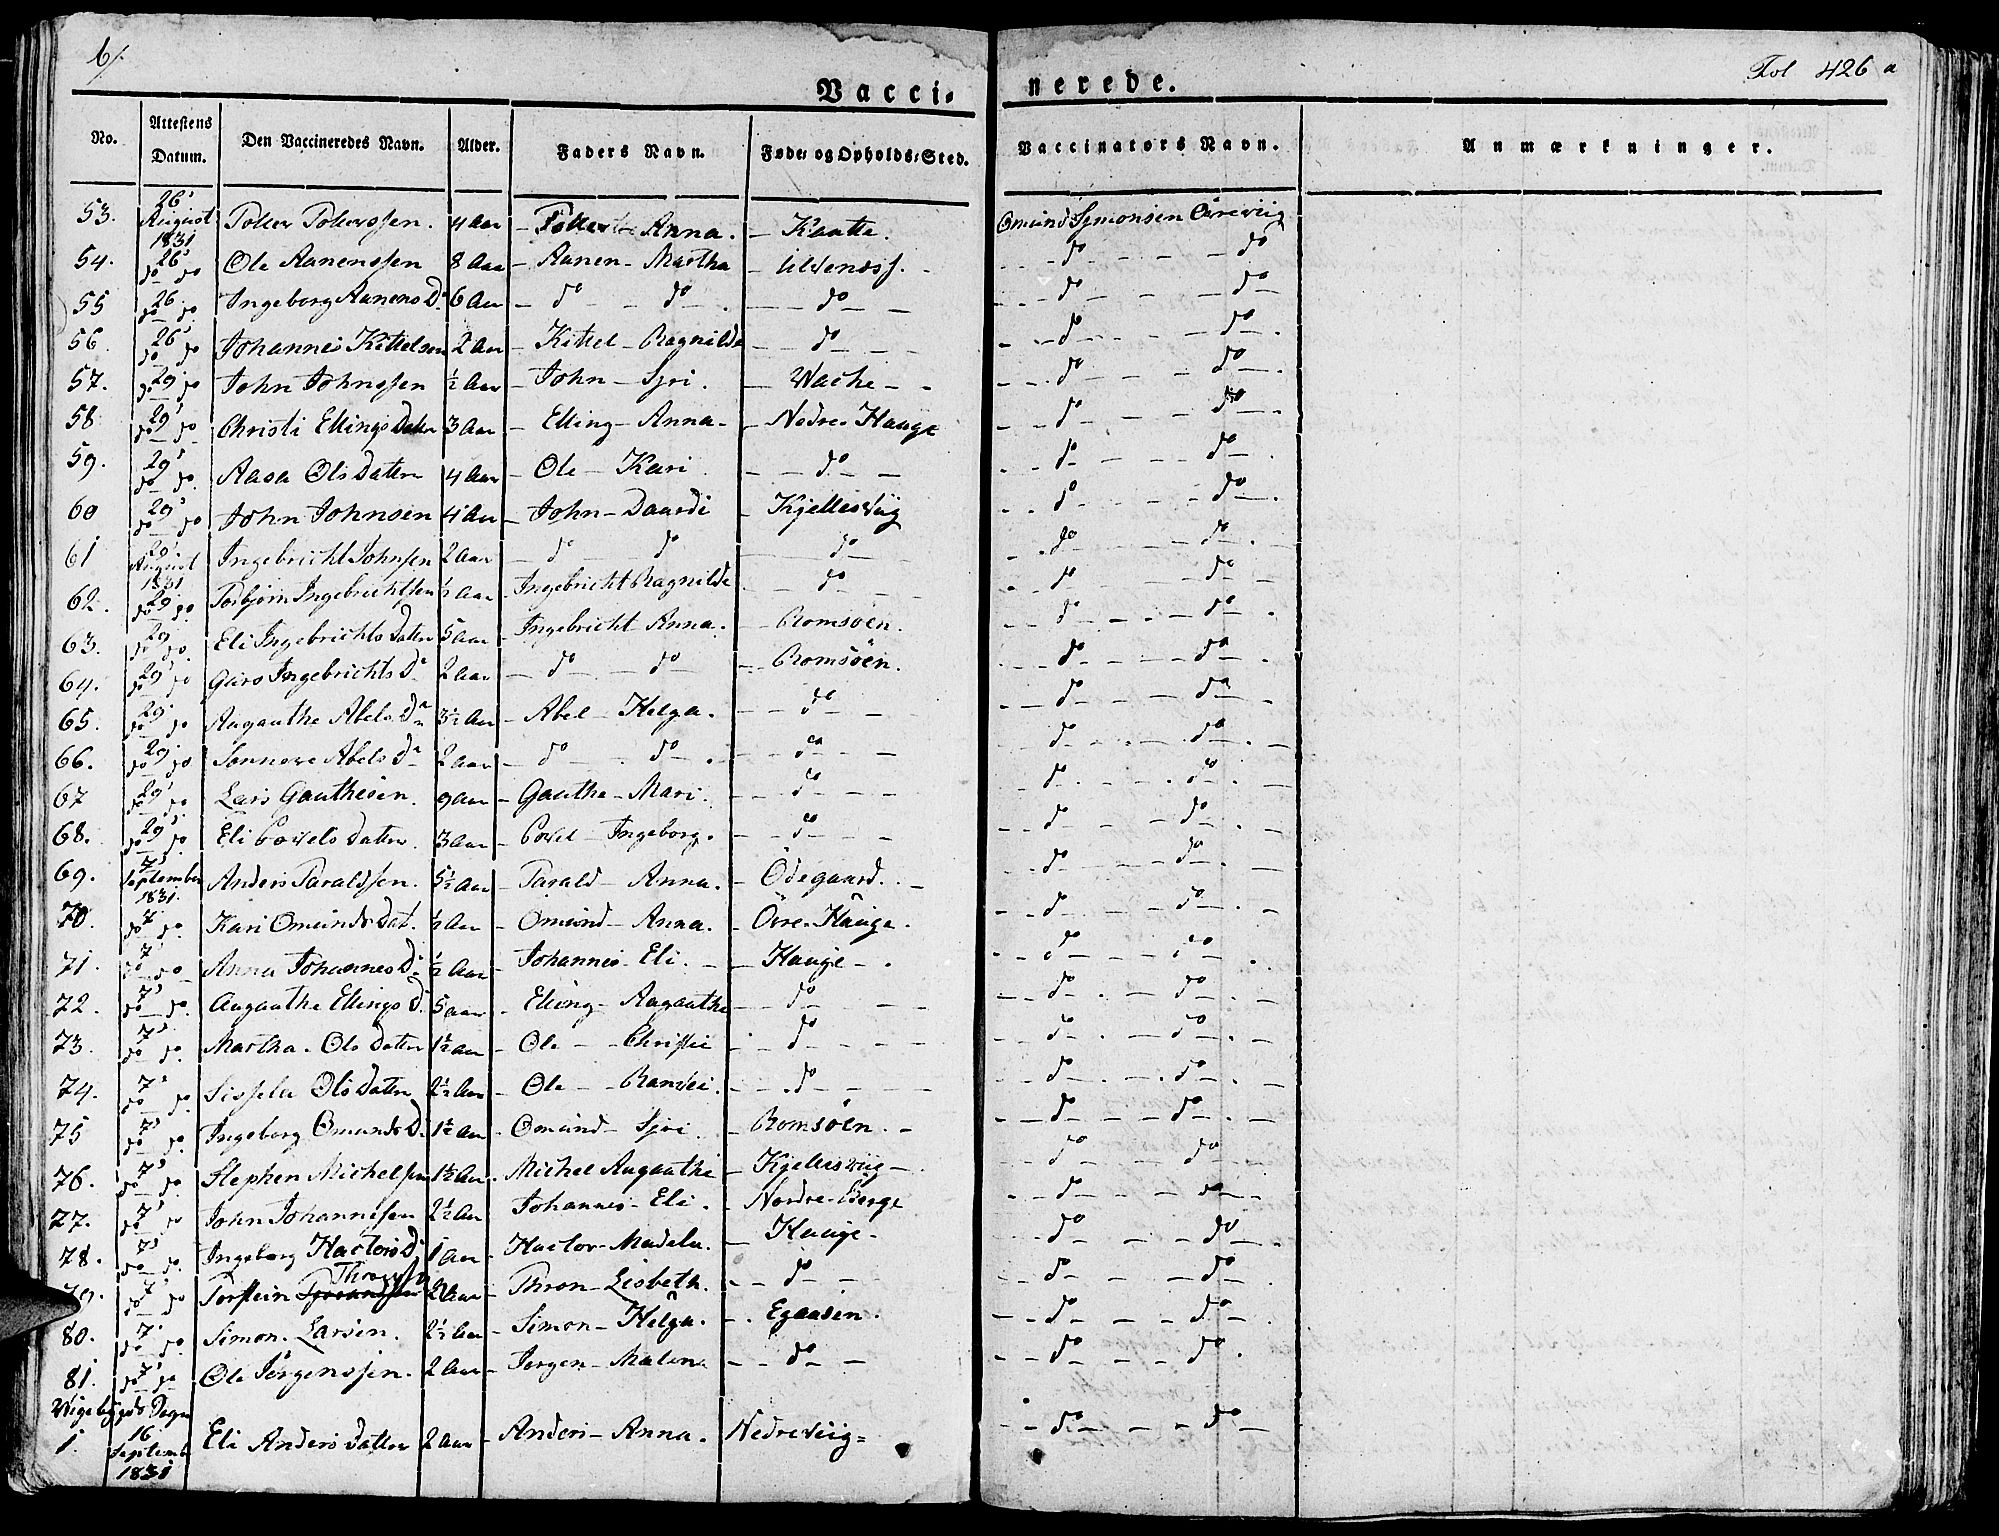 6/.
Fol 426 a
Vacci-nerede.
No. | Attestens Datum. | Den Vaccineredes Navn. | Alder. | Faders Navn. | Føde- og Opholds-Sted. | Vaccinators Navn. | Anmærkninger.
53. | 26' August 1831 | Toller Tollerssen. | 4 Aar | Toller Anna. | Kaatte. | Omund Symonsen Öwreviig
54. | 26' do do | Ole Aanenssen | 8 Aar | Aanen - Martha | | do do
55 | 26. do do | Ingeborg Aanens D. | 6 Aar | do do | do | do do
56. | 26' do do | Johannes Kittelsen | 2 Aar | Kittel - Ragnilda | do | do do
57. | 29' do do | John Johnssen | ½ Aar | John - Syri. | Wache | do do
58 | 29' do do | Christi Ellings Datter | 3 Aar | Elling - Anna | Nedre Hauge | do do
59. | 29' do do | Aasa Ols Datter | 4 Aar | Ole - Kari | do | do do
60 | 29' do do | John Johnsen | 4 Aar | John - Daardi | Kjellesviig | do do
61 | 29' August 1831 | Ingebricht Johnsen | 2 Aar | do do | do | do do
62. | 29 do do | Torbjørn Ingebrichtsen | ½ Aar | Ingebricht Ragnilda | do | do do
63. | 29' do do | Eli Ingebrichts Datter | 5 Aar | Ingebricht - Anna. | Romsöen. | do do
64. | 29' do do | Guro Ingebrichts D. | 2 Aar | do do | Romsöen. | do do
65. | 29' do do | Aagaathe Abels D. | 3½ Aar | Abel - Helga. | do | do do
66. | 29' do do | Sønneve Abels D. | 2 Aar | do do | do | do do
67 | 29' do do | Lars Gauthesen. | 9 Aar | Gauthe - Mari. | do | do do
68. | 29' do do | Eli Povels Datter. | 3 Aar | Povel - Ingeborg. | do | do do
69. | 7' September 1831. | Anders Taraldsen. | 5½ Aar | Tarald - Anna. | Ödegaard. | do do
70. | 7' do do | Kari Omunds Dat. | ½ Aar | Omund - Anna. | Övre Hauge. | do do
71. | 7' do do | Anna Johannes D. | ½ Aar | Johannes - Eli. | Hauge | do do
72. | 7' do do | Aagaathe Ellings D. | 5 Aar | Elling - Aagaathe | do | do do
73. | 7' do do | Martha Ols Datter | 1½ Aar | Ole - Christie | do | do do
74. | 7' do do | Sissela Ols Datter | 2½ Aar | Ole - Ranvei. | do | do do
75 | 7' do do | Ingeborg Omunds D. | 1½ Aar | Omund - Syri | Romsöen. | do do
76. | 7' do do | Stephen Michelsen | 1½ Aar. | Michel Aagaathe | Kjellesviig | do do
77. | 7' do do | John Johannesen | 2½ Aar | Johannes - Eli. | Nordre Berge | do do
78. | 7' do do | Ingeborg Hactors D. | 1 Aar | Hactor - Madela. | Hauge | do do
79. | 7' do do | Torstein Thronsen | 2 Aar | Thron - Lisbeth. | do | do do
80. | 7' do do | Simon Larsen. | 2½ Aar | Simon - Helga. | Egaasen. | do do
81. | 7' do do | Ole Jörgenssen. | 2 Aar | Jørgen - Malena | do | do do
Wigebÿgds Sogn
1. | 16 September 1831 | Eli Anders Datter | 2 Aar | Anders - Anna. | Nedreviig | do do